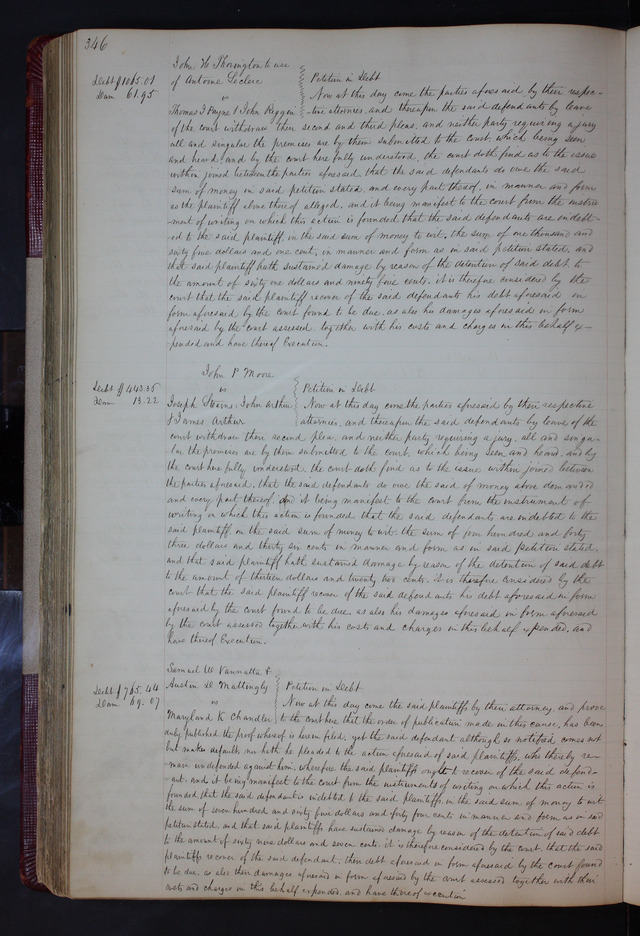 346
John H Thornglon to use
of Antoine Leclere
Debt $1065.01
Dam 61.95
vs
Petition in Debt
Thomas J Payne & John Riggin
Now at this day come the parties aforesaid by their respec-
-tive attornies, and thereupon the said defendants by leave
of the court withdraw their second and third pleas, and neither party requiring a jury
all and singular the premises are by them submitted to the court, which being seen
and heard, and by the court here fully understood, the court doth find as to the issue
within joined between the parties aforesaid, that the said defendants do owe the said
sum of money in said petition stated, and every part thereof, in manner and form
as the plaintiff above thereof alleged, and it being manifest to the court from the instru-
ment of writing on which this action is founded that the said defendants are indebt-
-ed to the said plaintiff, in the said sum of money to wit, the sum of one thousand and
sixty five dollars and one cent, in manner and form as in said petition stated, and
that said plaintiff hath sustained damage by reason of the detention of said debt, to
the amount of sixty one dollars and ninety five cents. it is therefore considered by the
court that the said plaintiff recover of the said defendants his debt aforesaid in
form aforesaid by the court found to be due, as also his damages aforesaid in form
aforesaid by the court assessed, together with his costs and charges in this behalf ex-
-pended and have thereof Execution.
John P Moore
Debt $443.36
Dam 13.22
vs
Petition in Debt
Joseph Stearns, John Arthur
& James Arthur
Now at this day come the parties aforesaid by their respective
attornies, and thereupon the said defendants by leave of the
court withdraw their second plea, and neither party requiring a jury, all and singu-
lar the premises are by them submitted to the court, which being seen and heard, and by
the court here fully understood, the court doth find as to the issue within joined between
the parties aforesaid, that the said defendants do owe the said of money above demanded
and every part thereof, and it being manifest to the court from the instrument of
writing on which this action is founded that the said defendants are indebted to the
said plaintiff, in the said sum of money to wit: the sum of four hundred and forty
three dollars and thirty six cents in manner and form as in said petition stated,
and that said plaintiff hath sustained damage by reason of the detention of said debt
to the amount of thirteen dollars and twenty two cents. It is therefore considered by the
court that the said plaintiff recover of the said defendants his debt aforesaid in form
aforesaid by the court found to be due, as also his damages aforesaid in form aforesaid
by the court assessed together with his costs and charges in this behalf expended, and
have thereof Execution.
Samuel W Vannatta &
Austin D Mattingly
Debt $765.44
Dam 69.07
vs
Petition in Debt
Maryland K Chandler
Now at this day come the said plaintiffs by their attorney, and prove
to the court here that the order of publication made in this cause, has been
duly published the proof whereof is herein filed, yet the said defendant although so notified comes not
but makes default, nor hath he pleaded to the action aforesaid of said plaintiffs, who thereby re-
main undefended against him, wherefore the said plaintiffs ought to recover of the said defend-
-ant. And it being manifest to the court from the instruments of writing on which this action is
founded that the said defendant is indebted to the said plaintiffs, in the said sum of money to wit
the sum of seven hundred and sixty five dollars and forty four cents in manner and form as in said
petition stated, and that said plaintiffs have sustained damage by reason of the detention of said debt
to the amount of sixty nine dollars and seven cents, it is therefore considered by the court, that the said
plaintiffs recover of the said defendant, their debt aforesaid in form aforesaid by the court found
to be due, as also their damages aforesaid in form aforesaid by the court assessed together with their
costs and charges in this behalf expended, and have thereof execution